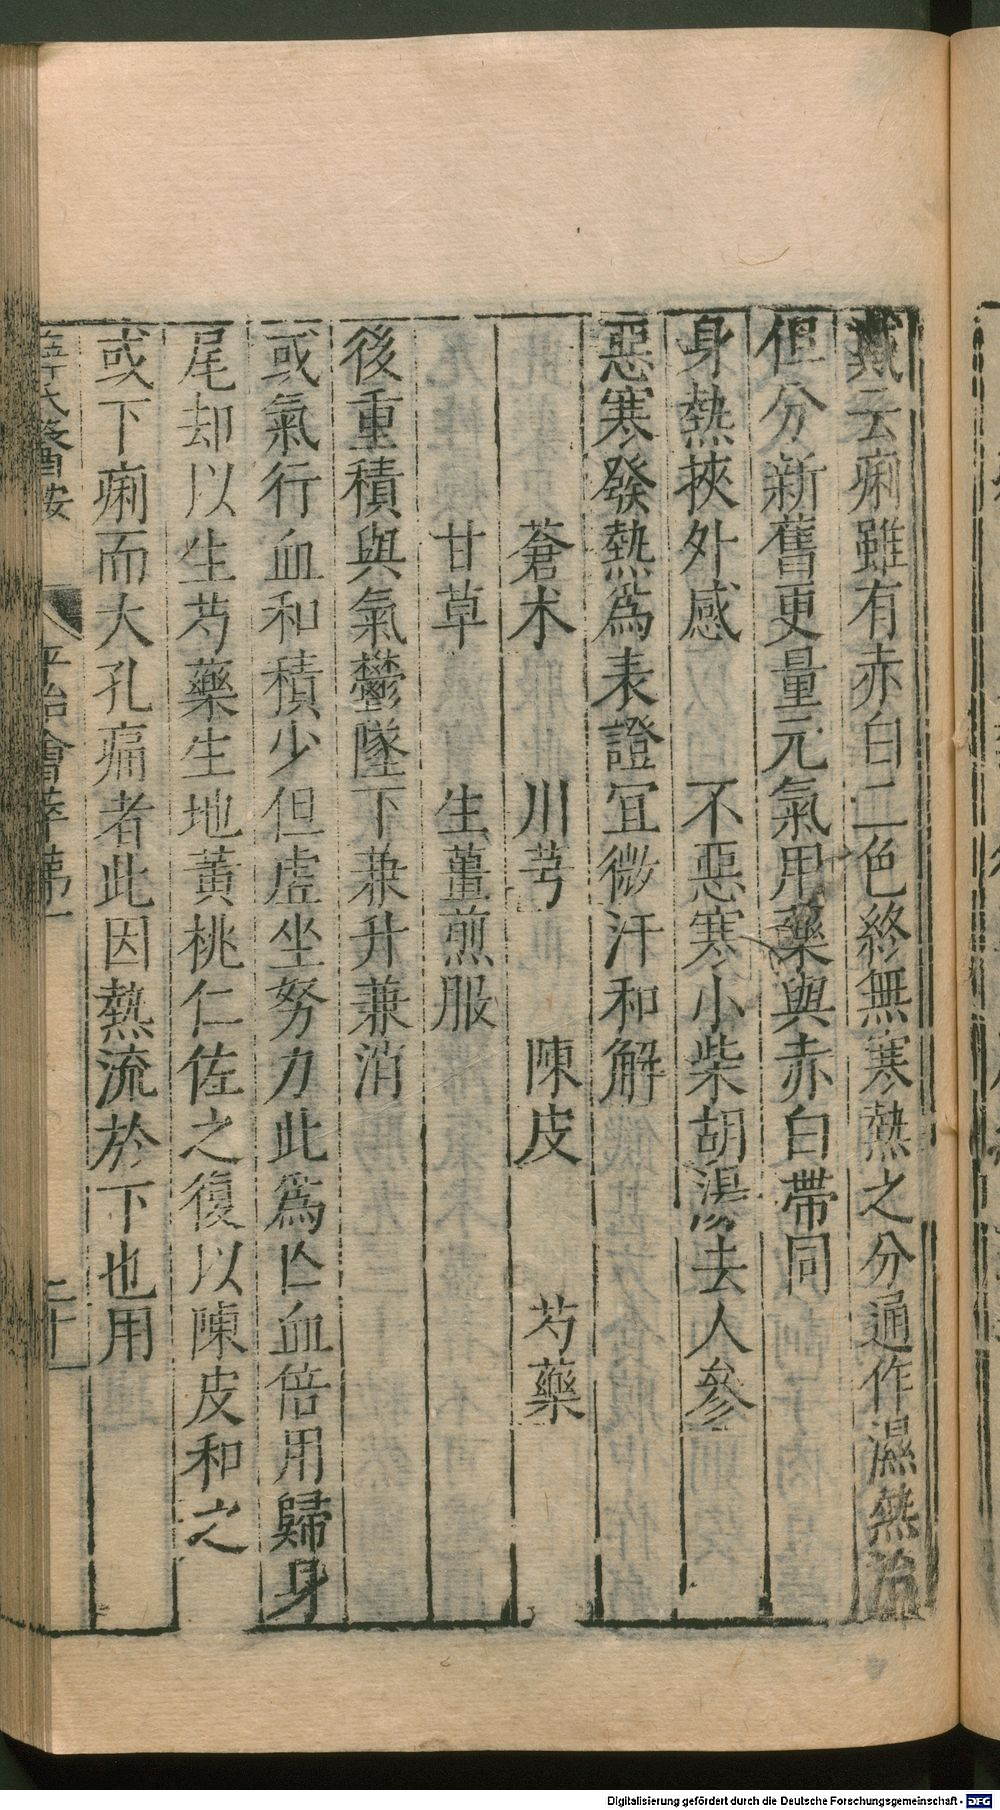 戴云痢雖有赤白二色終無寒熱之分通作濕熱治
但分新舊更量元氣用藥與赤白帶同
身熱挾外感　不惡寒小柴胡湯去人參
惡寒發熱爲表證宜微汗和解
蒼术　川芎　陳皮　芍藥
甘草　生薑煎服
後重積與氣鬱墜下兼升兼消
或氣行血和積少但虛坐努力此爲亾血倍用歸身
尾却以生芍藥生地黃桃仁佐之復以陳皮和之
或下痢而大孔痛者此因熱流於下也用
薛氏醫按　平治會萃第一　二十一
Digitalisierung gefördert durch die Deutsche Forschungsgemeinschaft - DFG